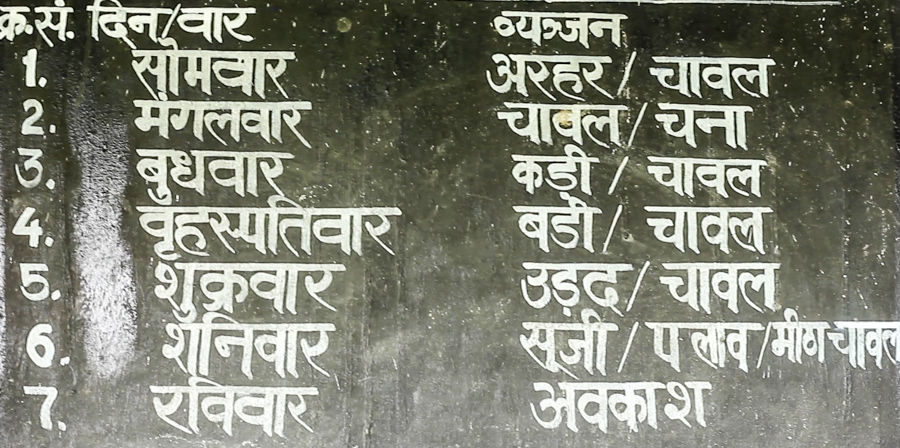 क्र.सं. दिन/वार व्यञ्जन
1. सोमवार अरहर / चावल
2. मंगलवार चावल / चना
3. बुधवार कडी / चावल
4. वृहस्पतिवार बडी / चावल
5. शुक्रवार उड़द / चावल
6. शनिवार सूजी / पलाव / मीठा चावल
7. रविवार अवकाश